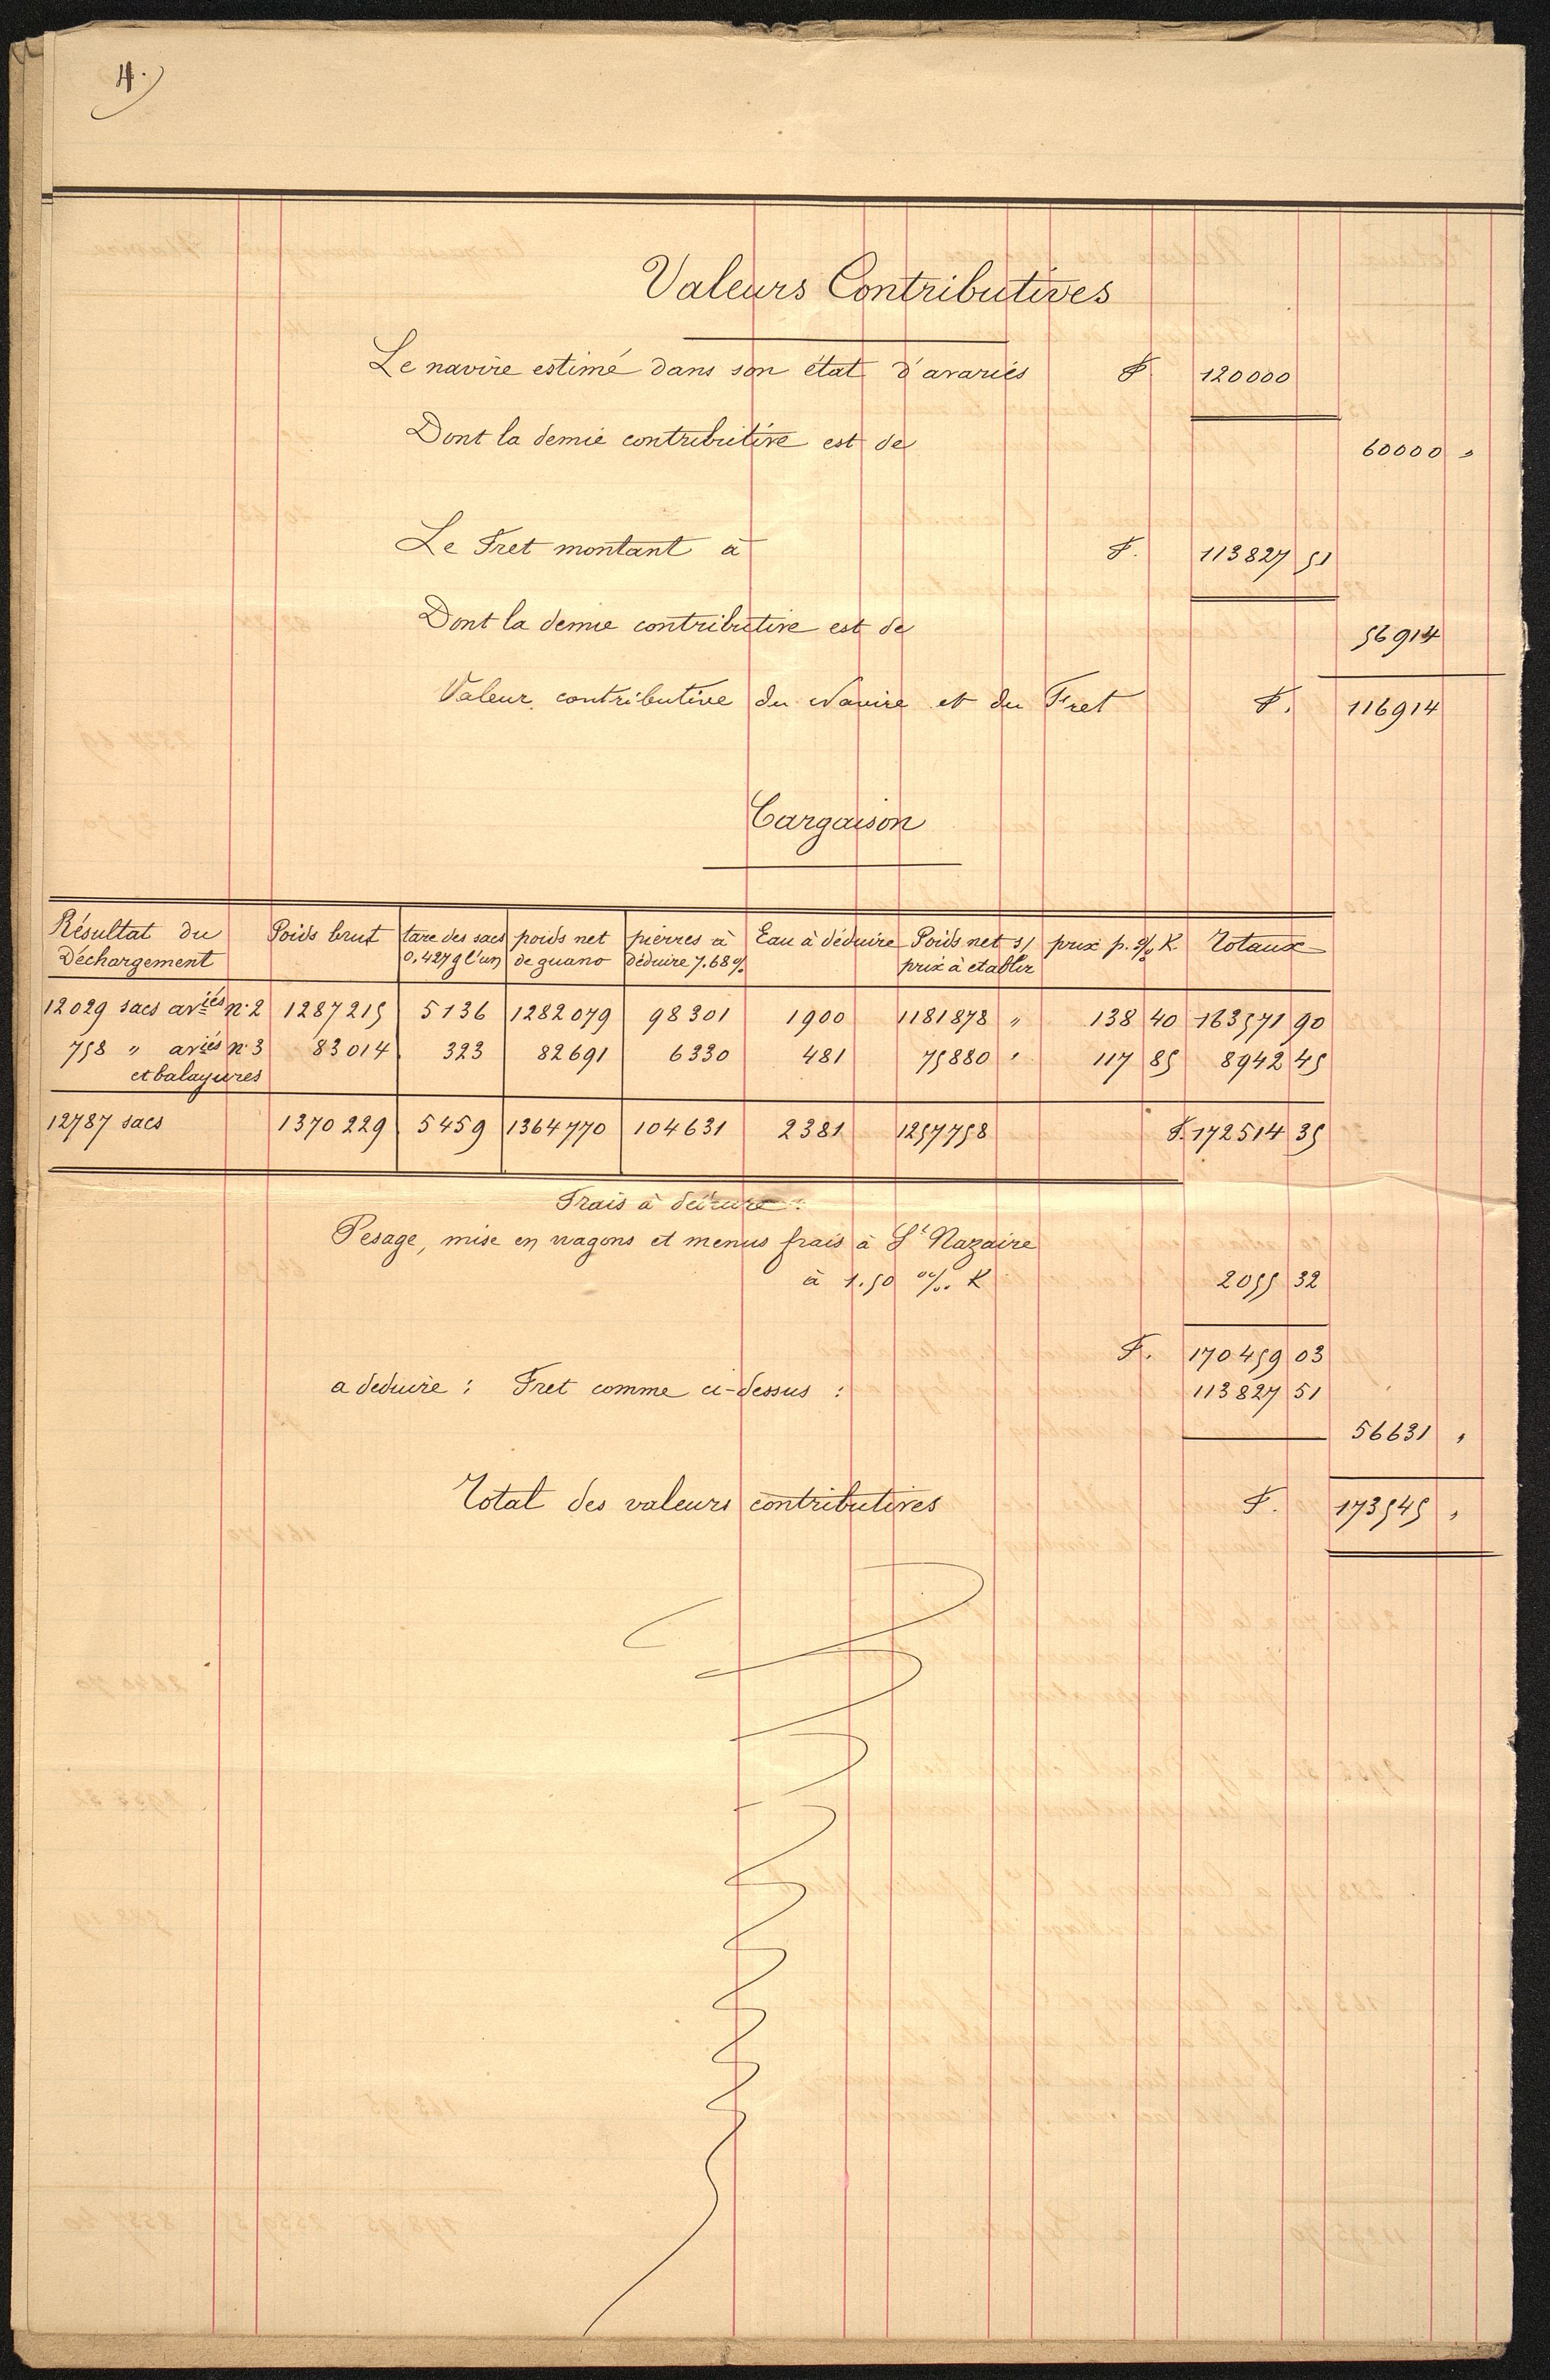 4.
Valeurs Contributives
Le navire estimé dans son état d'avariés F 120000
Dont la demie contributive est de 60000 "
Le Fret montant à F. 113827 51
Dont la demie contributive est de 56914
Valeur contributive du Navire et du Fret F. 116914
Cargaison
Résultat du Déchargement Poids brut tare des sacs 0,427g l'un poids net de guano pierres à déduire 7.68% Eau à déduire Poids net s/ prix à etablir prix p. % K. Totaux
12029 sacs avriés n°2 1287215 5136 1282079 98301 1900 1181878 " 138 40 163571 90
758 " avriés n°3 et balayures 83014 323 82691 6330 481 75880 " 117 85 8942 45
12787 sacs 1370229 5459 1364770 104631 2381 1257758 F. 172514 35
Frais à déduire :
Pesage, mise en wagons et menus frais à St Nazaire
à 1.50 ‰ K 2055 32
F. 170459 03
a deduire : Fret comme ci-dessus : 113827 51
56631 "
Total des valeurs contributives F. 173545 "